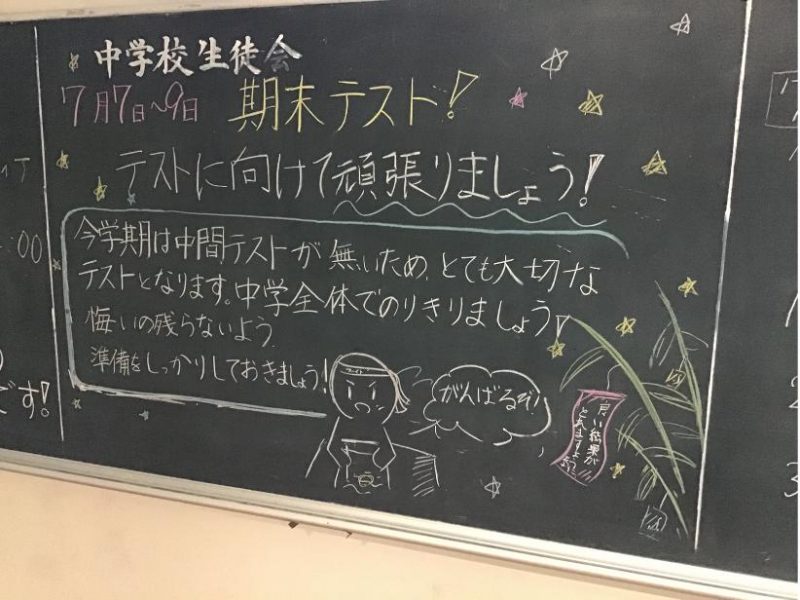 中学校生徒会
7月7日〜9日 期末テスト!
テストに向けて頑張りましょう!
今学期は中間テストが無いため、とても大切な
テストとなります。中学全体でのりきりましょう!
悔いの残らないよう
準備をしっかりしておきましょう!
がんばるぞ!
良い結果が
とれますように
:00
です!